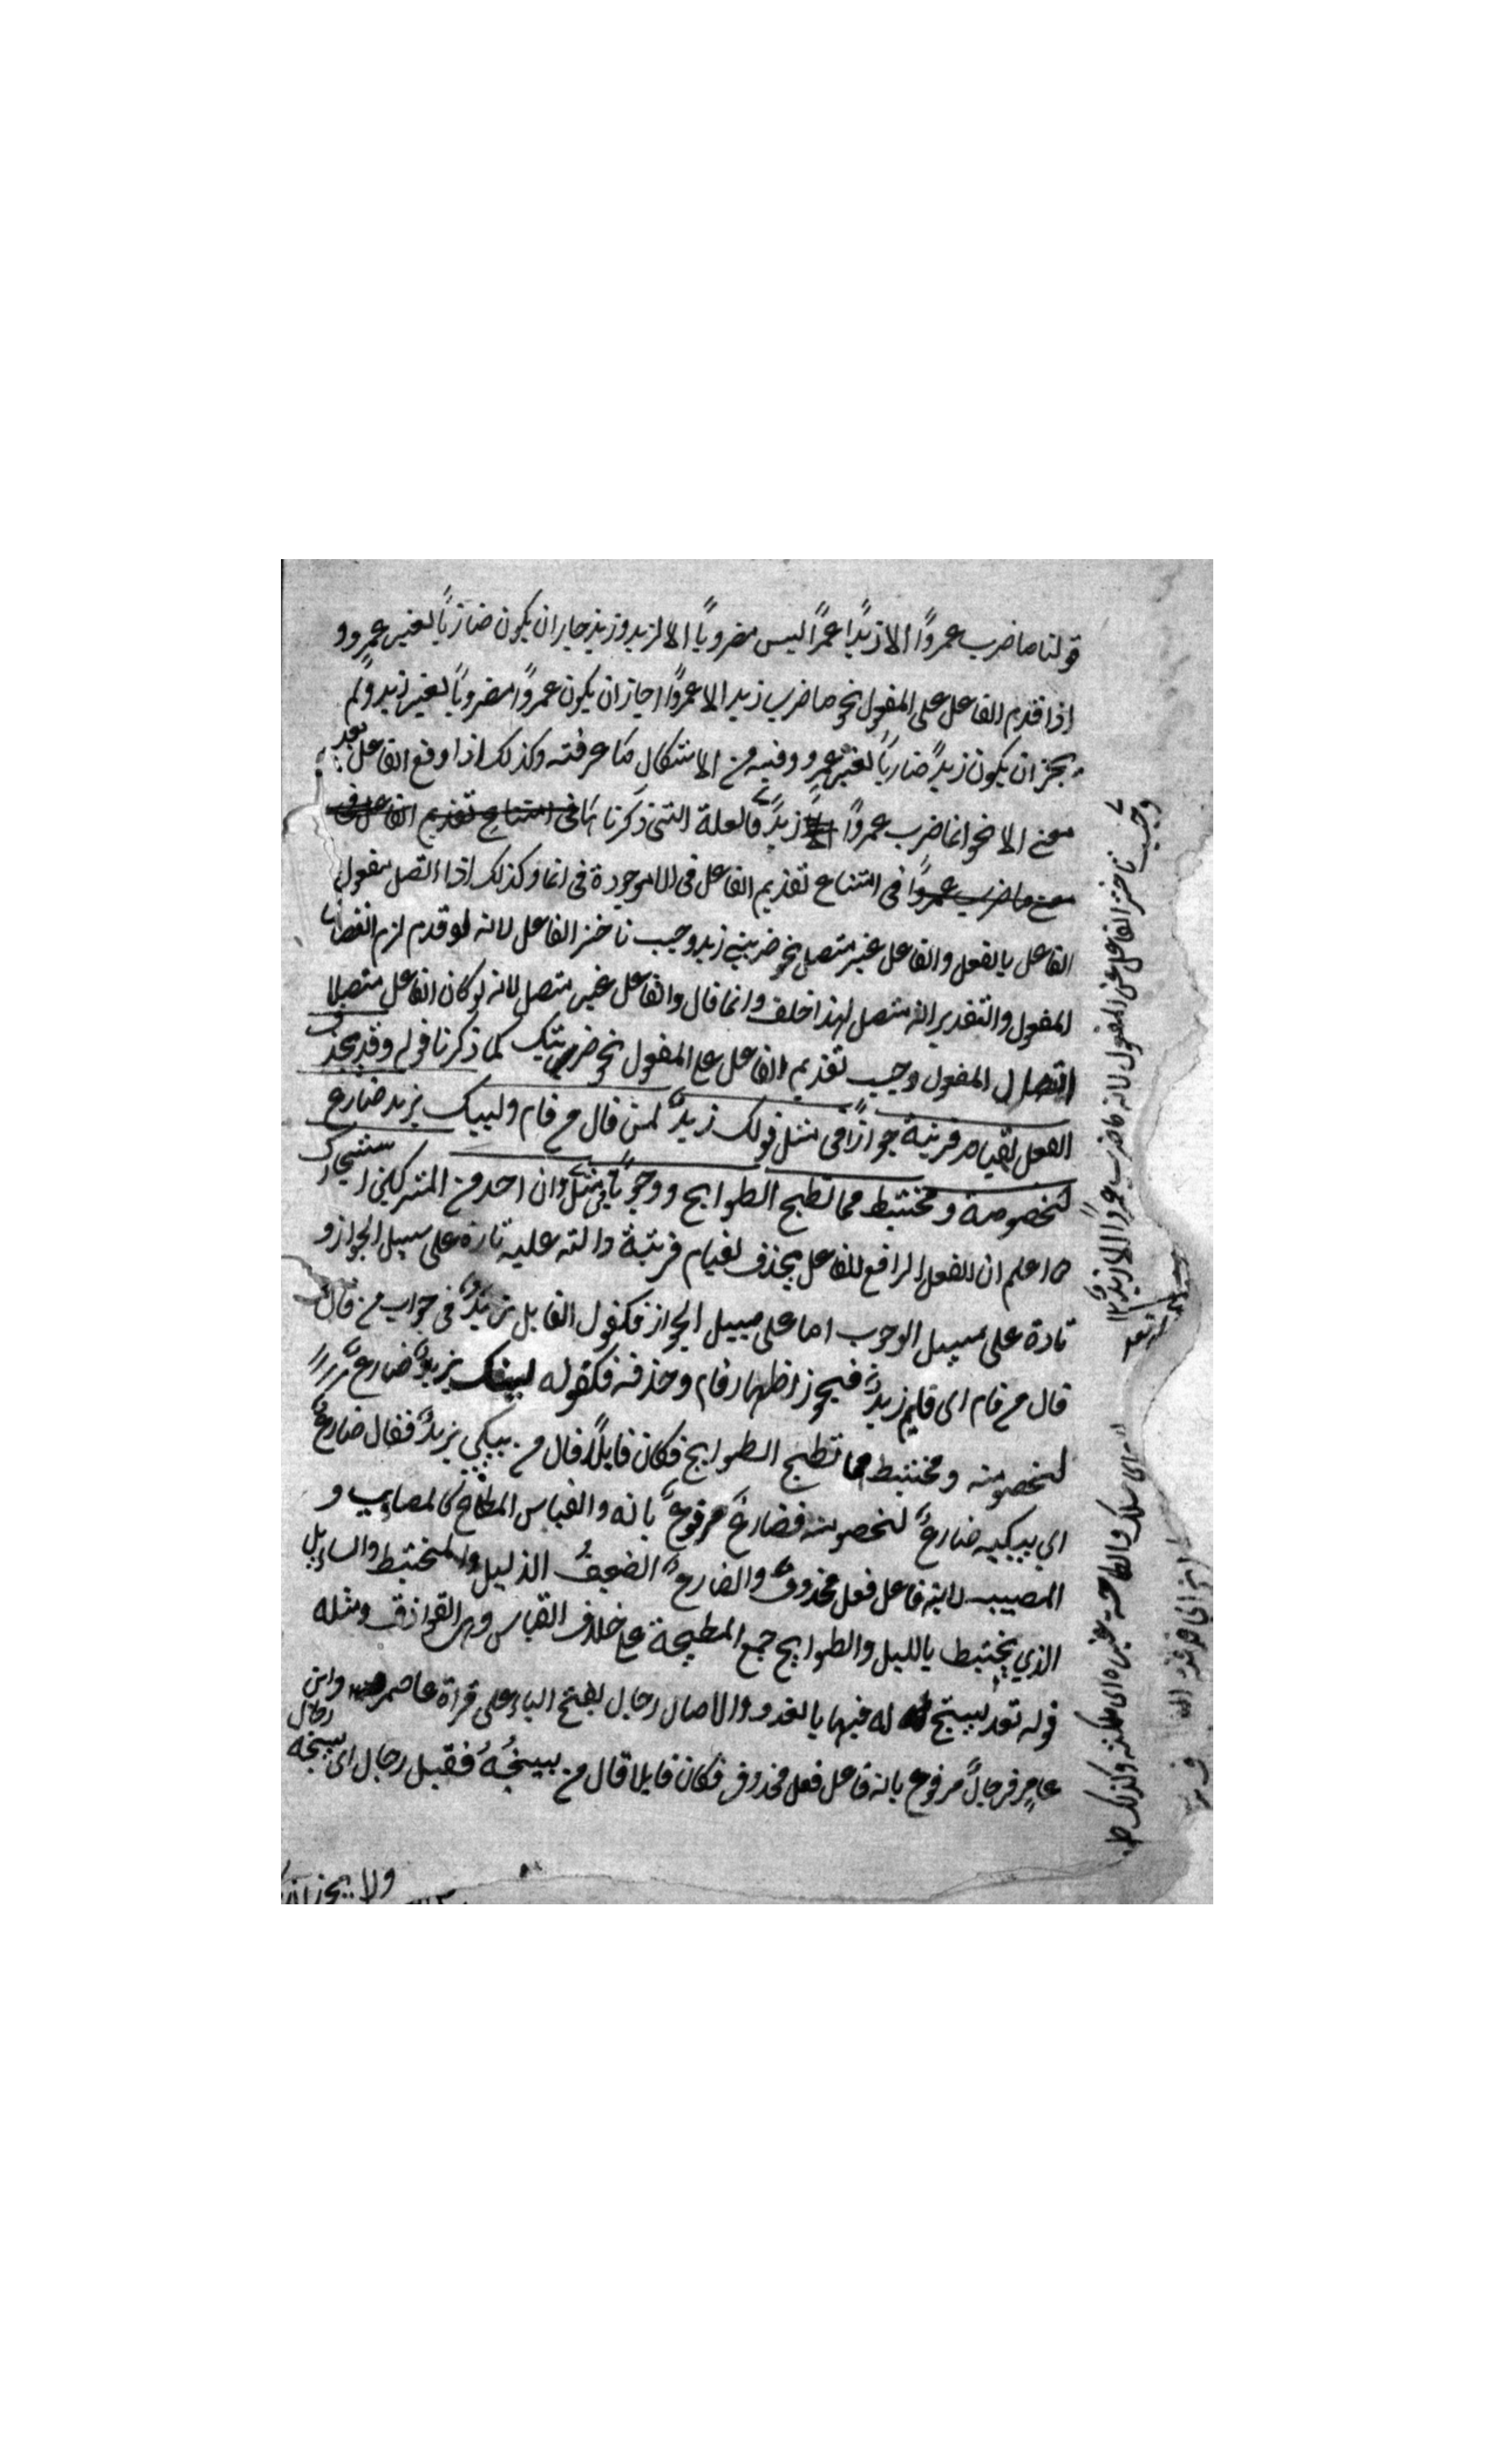 قولنا ما ضرب عمروًا الا زيدًا عمرًا ليس مضروبًا الا لزيد وزيد جاز ان يكون ضاربًا لغير عمرو و
اذا قدم الفاعل على المفعول نحو ما ضرب زيد الا عمروًا جاز ان يكون عمروًا مضروبًا لغير زيد ولم
يجز ان يكون زيدًا ضاربًا لغير عمرو وفيه من الاشكال ما عرفته وكذلك اذا وقع الفاعل بعد
معنى الا نحو انما ضرب عمروًا زيدٌ فالعلة التي ذكرناها فى امتناع تقديم الفاعل فى
معنى ما ضرب عمروًا فى امتناع تقديم الفاعل فى الا موجودة فى انما وكذلك اذا اتصل مفعول
الفاعل بالفعل والفاعل غير متصل نحو ضربني زيد وجب تاخير الفاعل لانه لو قدم لزم انفصال
المفعول والتقدير انه متصل لهذا خلف وانما قال والفاعل غير متصل لانه لو كان الفاعل متصلا
اتصال المفعول وجب تقديم الفاعل على المفعول نحو ضربتك كما ذكرنا قوله وقد يحذف
الفعل لقيام قرينة جوازًا فى مثل قولك زيدٌ لمن قال من قام وليبك يزيد ضارع
لخصومة ومختبط مما تطيح الطوايح ووجوبًا فى مثل وان احد من المشركين استجارك
اعلم ان الفعل الرافع للفاعل يحذف لقيام قرينة دالته عليه تارة على سبيل الجواز و
تارة على سبيل الوجوب اما على سبيل الجواز فكقول القايل زيدٌ فى جواب من قال
قال من قام اى قام زيدٌ فيجوز اظهار قام وحذفه فكقوله ليبك يزيدٌ ضارعٌ
لخصومته ومختبط مما تطيح الطوايح فكان قايلًا قال من يبكي يزيدٌ فقال ضارعٌ
اي يبكيه ضارعٌ لخصومته فضارعٌ مرفوعٌ بانه والقياس المطاوح كالمصايب و
المصيبب لانه فاعل فعل محذوفٌ والضارعٌ الضعيفُ الذليل والمختبط والسايل
الذي يختبط بالليل والطوايح جمع المطيحة على خلاف القياس وهى القواذف ومثله
قوله تعـ يسبح له فيها بالغدو والاصال رجال بفتح الباء على قراة عاصم وابن
عامر فرجالٌ مرفوع بانه فاعل فعل محذوف فكان قايلا قال من يسبحُهُ فقيل رجال اى يسبحه رجال
وجب تاخير الفاعل عن المفعول لانه ما ضرب عمروًا الا زيدٌ ١٢